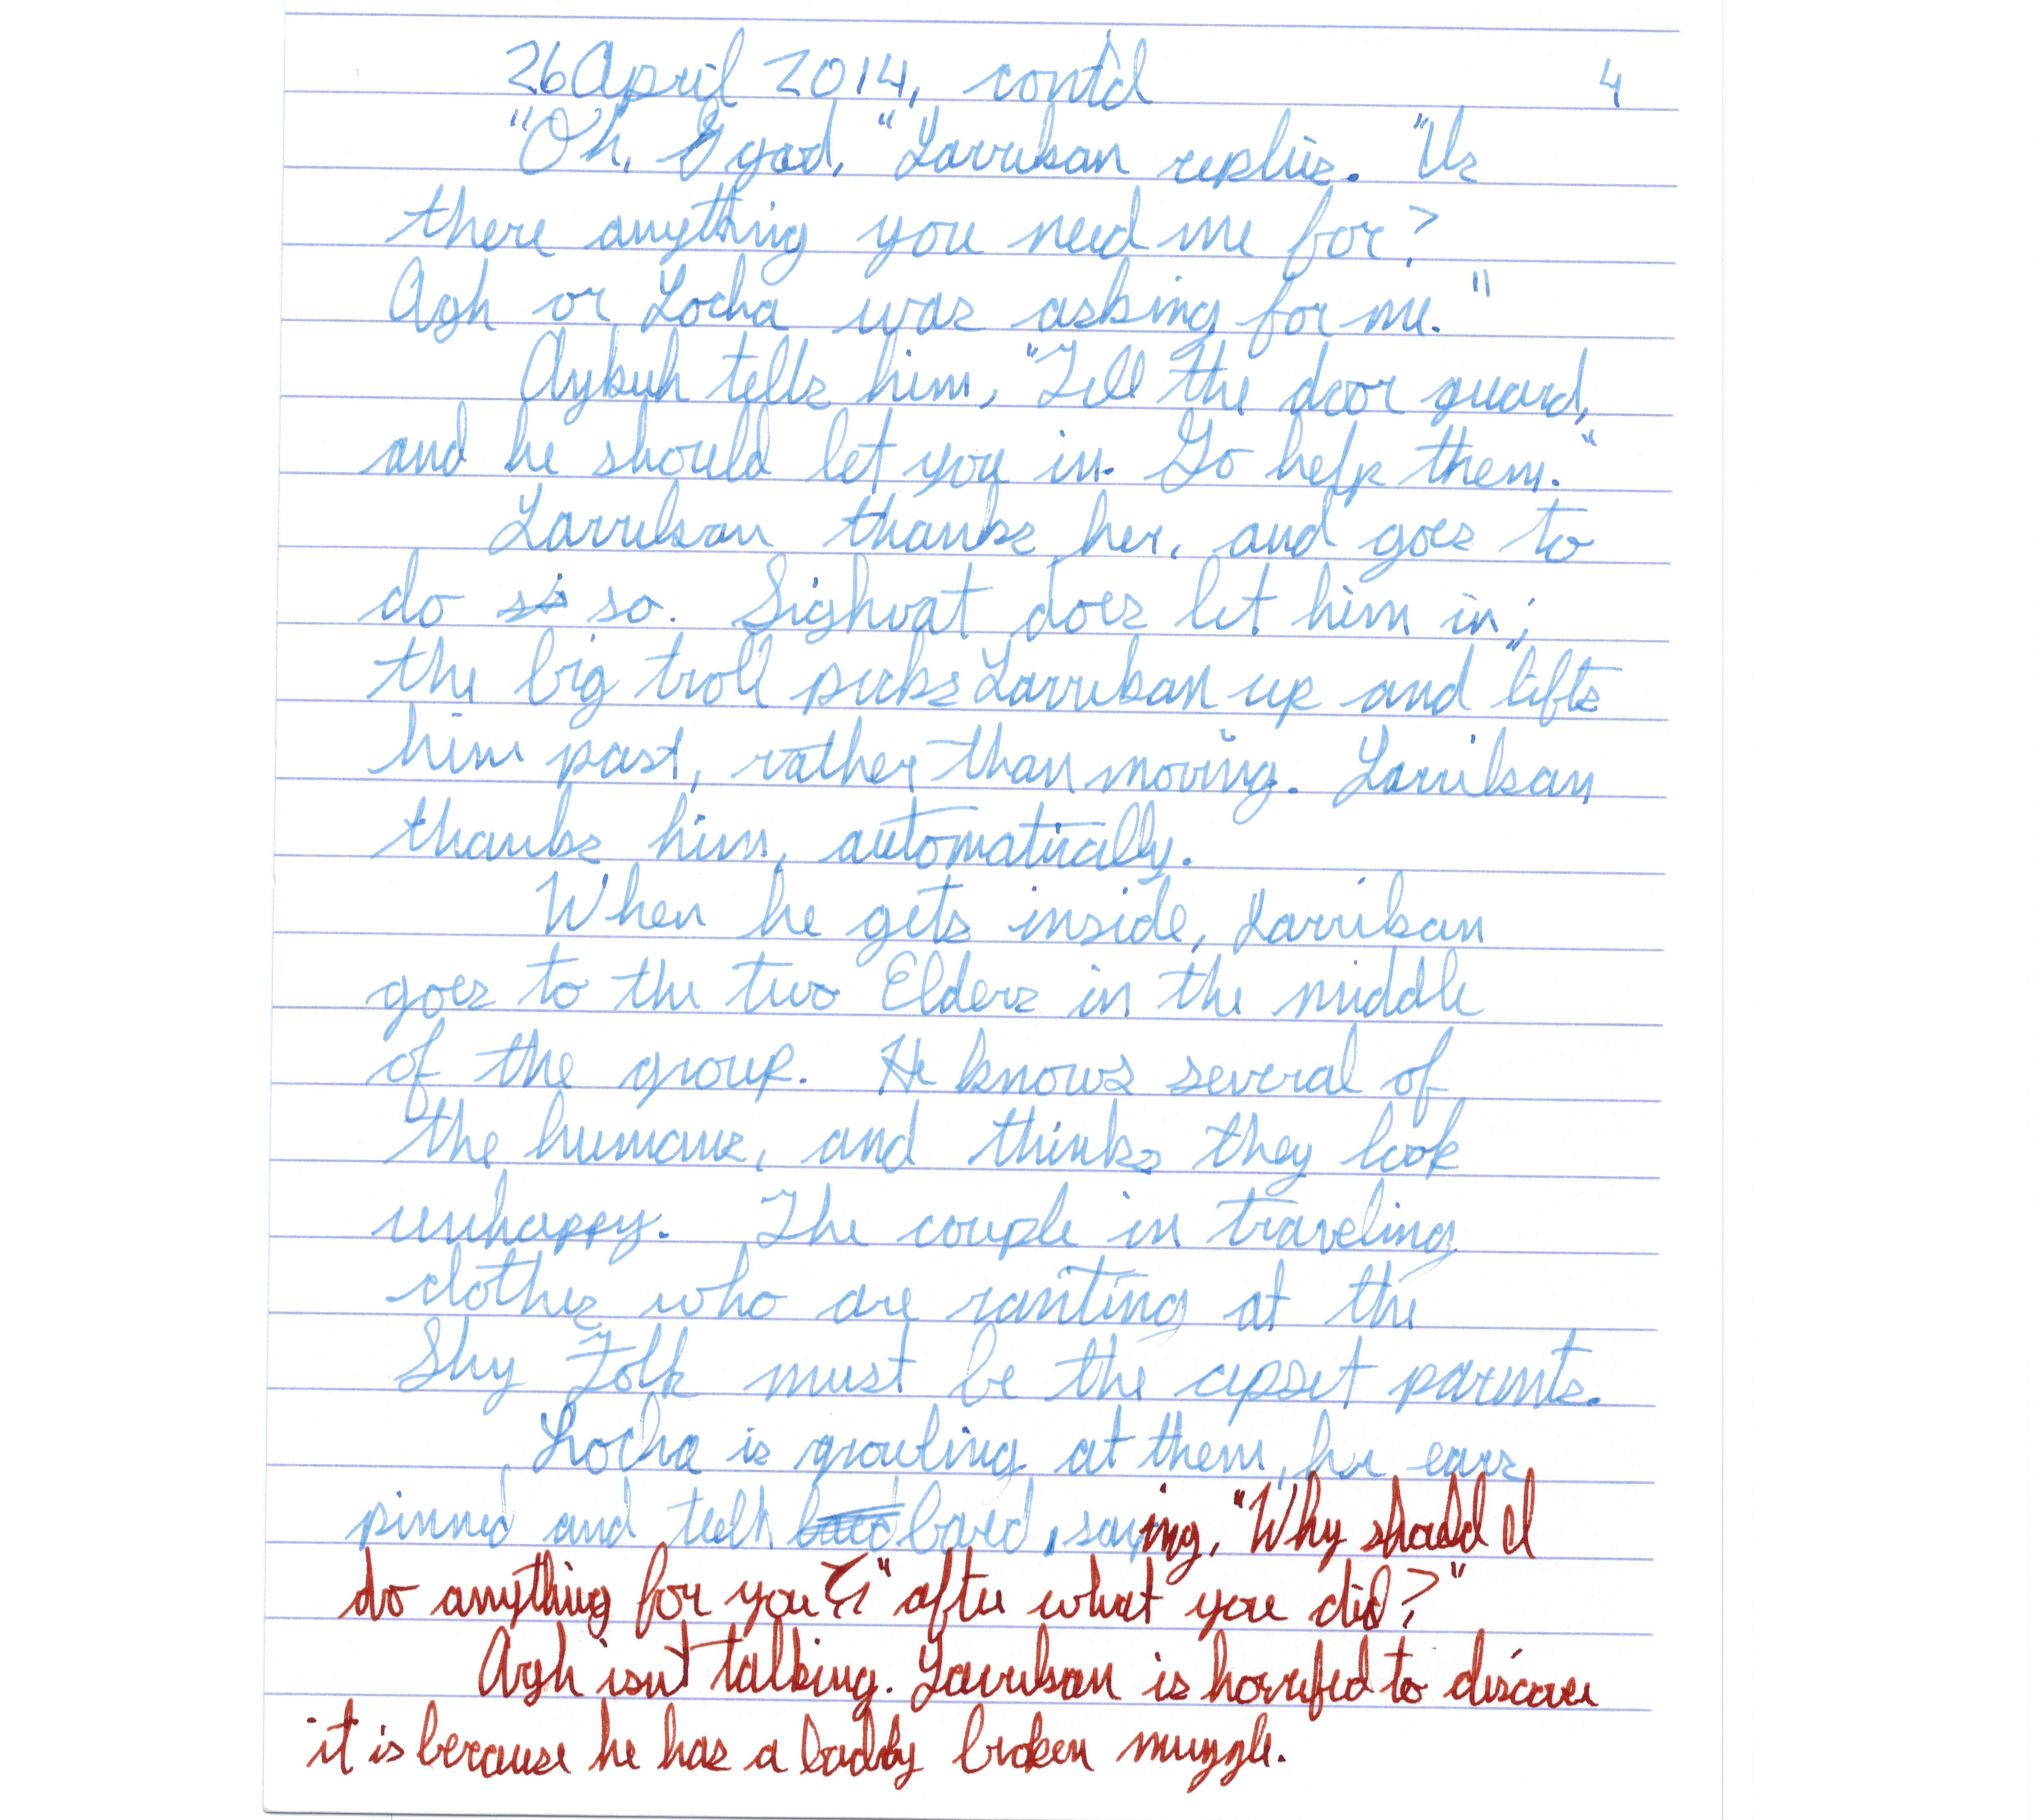 26 April 2014, cont'd 4
"Oh, I god," Larrikan replies. "Is
there anything you need me for?
Agh or Locha was asking for me."
Aykuh tells him, "Tell the door guard,
and he should let you in. Go help them."
Larrikan thanks her, and goes to
do so. Sighvat does let him in;
the big troll picks Larrikan up and lifts
him past, rather than moving. Larrikan
thanks him, automatically.
When he gets inside, Larrikan
goes to the two Elders in the middle
of the group. He knows several of
the humans, and thinks they look
unhappy. The couple in traveling
clothes who are ranting at the
Shy Folk must be the upset parents.
Locha is growling at them, her ears
pinned and teeth bared, saying, "Why should I
do anything for you after what you did?"
Agh isn't talking. Larrikan is horrified to discover
it is because he has a badly broken muzzle.